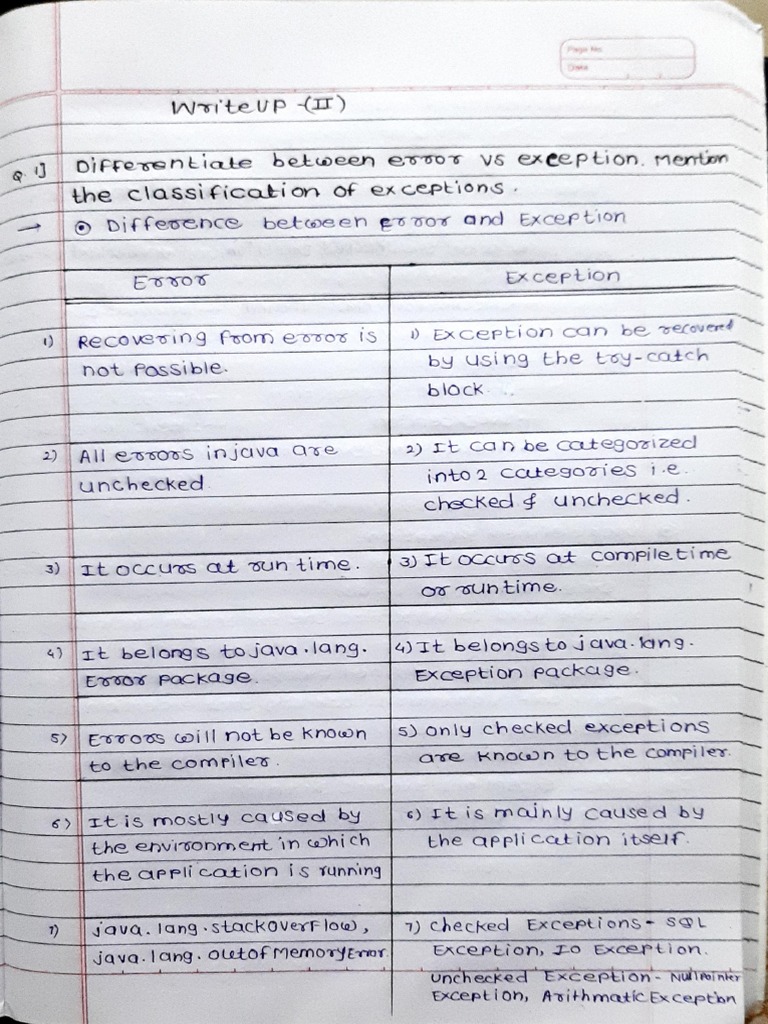 Page No.
Date
WriteUP -(II)
Q. 1] Differentiate between error vs exception. Mention
the classification of exceptions.
→ ⊙ Difference between Error and Exception
Error
Exception
1) Recovering from error is
not Possible.
1) Exception can be recovered
by using the try-catch
block.
2) All errors in java are
unchecked
2) It can be categorized
into 2 categories i.e.
checked & unchecked.
3) It occurs at run time.
3) It occurs at compile time
or runtime.
4) It belongs to java.lang.
Error package.
4) It belongs to java.lang.
Exception package.
5) Errors will not be known
to the compiler.
5) only checked exceptions
are known to the compiler.
6) It is mostly caused by
the environment in which
the application is running
6) It is mainly caused by
the application itself.
7) java.lang.stackOverFlow,
java.lang.outofMemoryError
7) checked Exceptions - SQL
Exception, Io Exception.
unchecked Exception - NullPointer
Exception, Arithmatic Exception